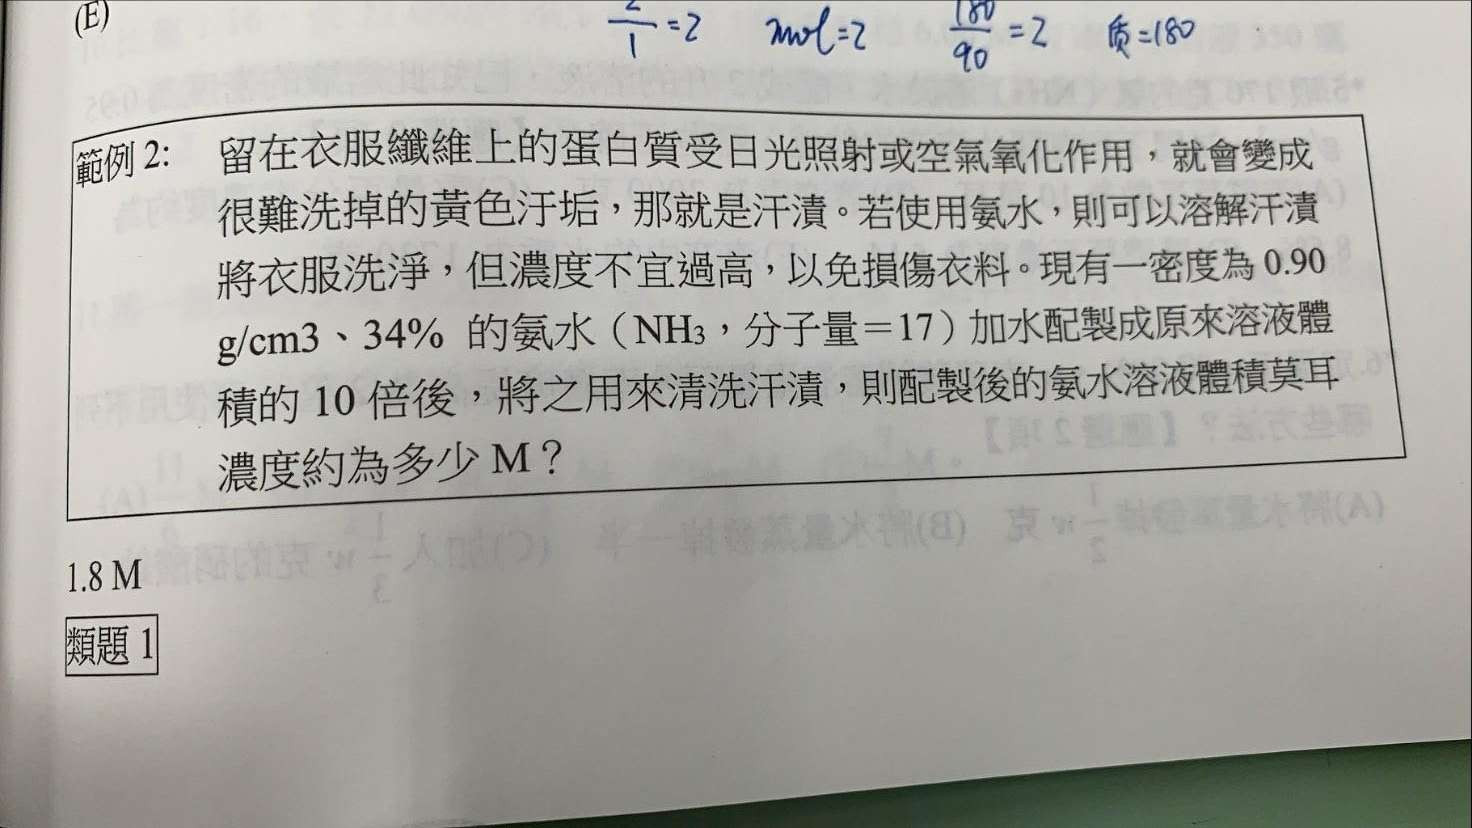 (E)
2/1 =2 mol=2 180/90 =2 质=180
範例 2: 留在衣服纖維上的蛋白質受日光照射或空氣氧化作用，就會變成
很難洗掉的黃色汙垢，那就是汗漬。若使用氨水，則可以溶解汗漬
將衣服洗淨，但濃度不宜過高，以免損傷衣料。現有一密度為 0.90
g/cm3、34% 的氨水（NH₃，分子量＝17）加水配製成原來溶液體
積的 10 倍後，將之用來清洗汗漬，則配製後的氨水溶液體積莫耳
濃度約為多少 M？
1.8 M
類題 1